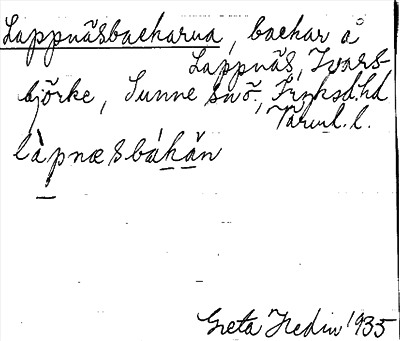 Lappnäsbackarna, backar å
Lappnäs, Ivars-
björke, Sunne snō., Frnksd.hd
Värml. l.
làpnæsbákăn
Greta Hedin 1935